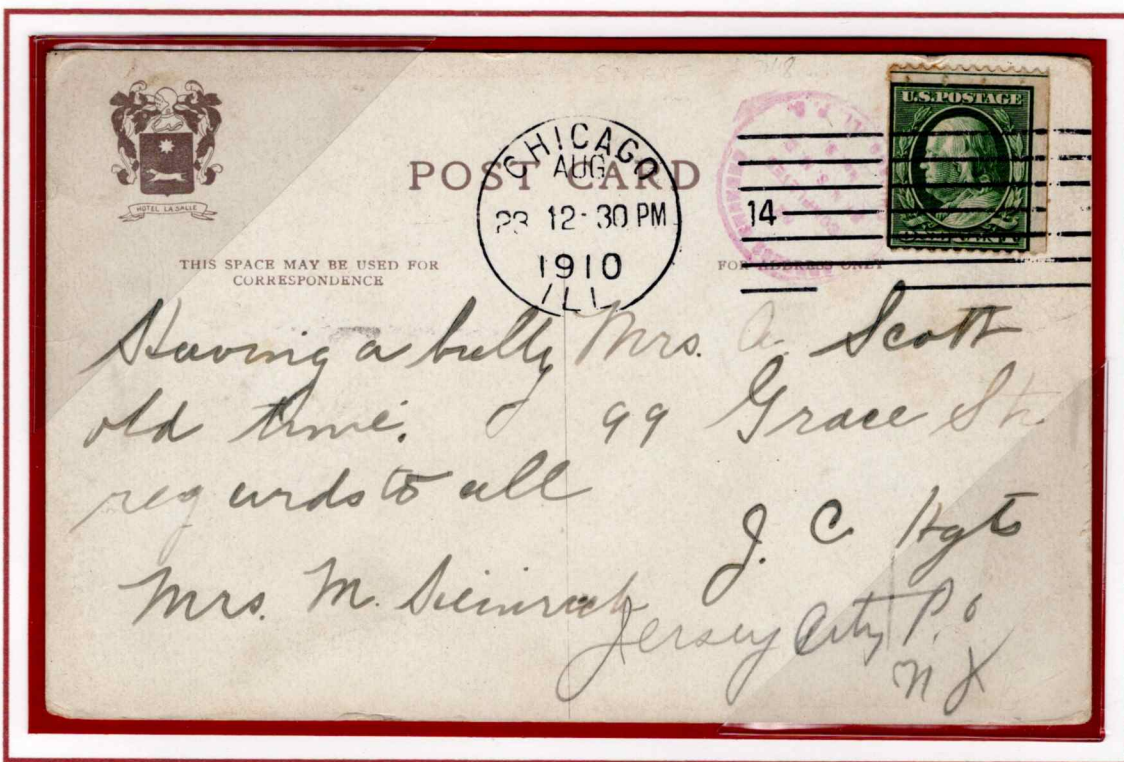 HOTEL LA SALLE
POST CARD
CHICAGO
AUG
23 12-30 PM
1910
ILL
14
U.S. POSTAGE
ONE CENT
THIS SPACE MAY BE USED FOR
CORRESPONDENCE
FOR ADDRESS ONLY
Having a bully
old time.
regards to all
Mrs. M.
Mrs. A. Scott
99 Grace Str.
J. C. Hgts
Jersey City P.O
N J